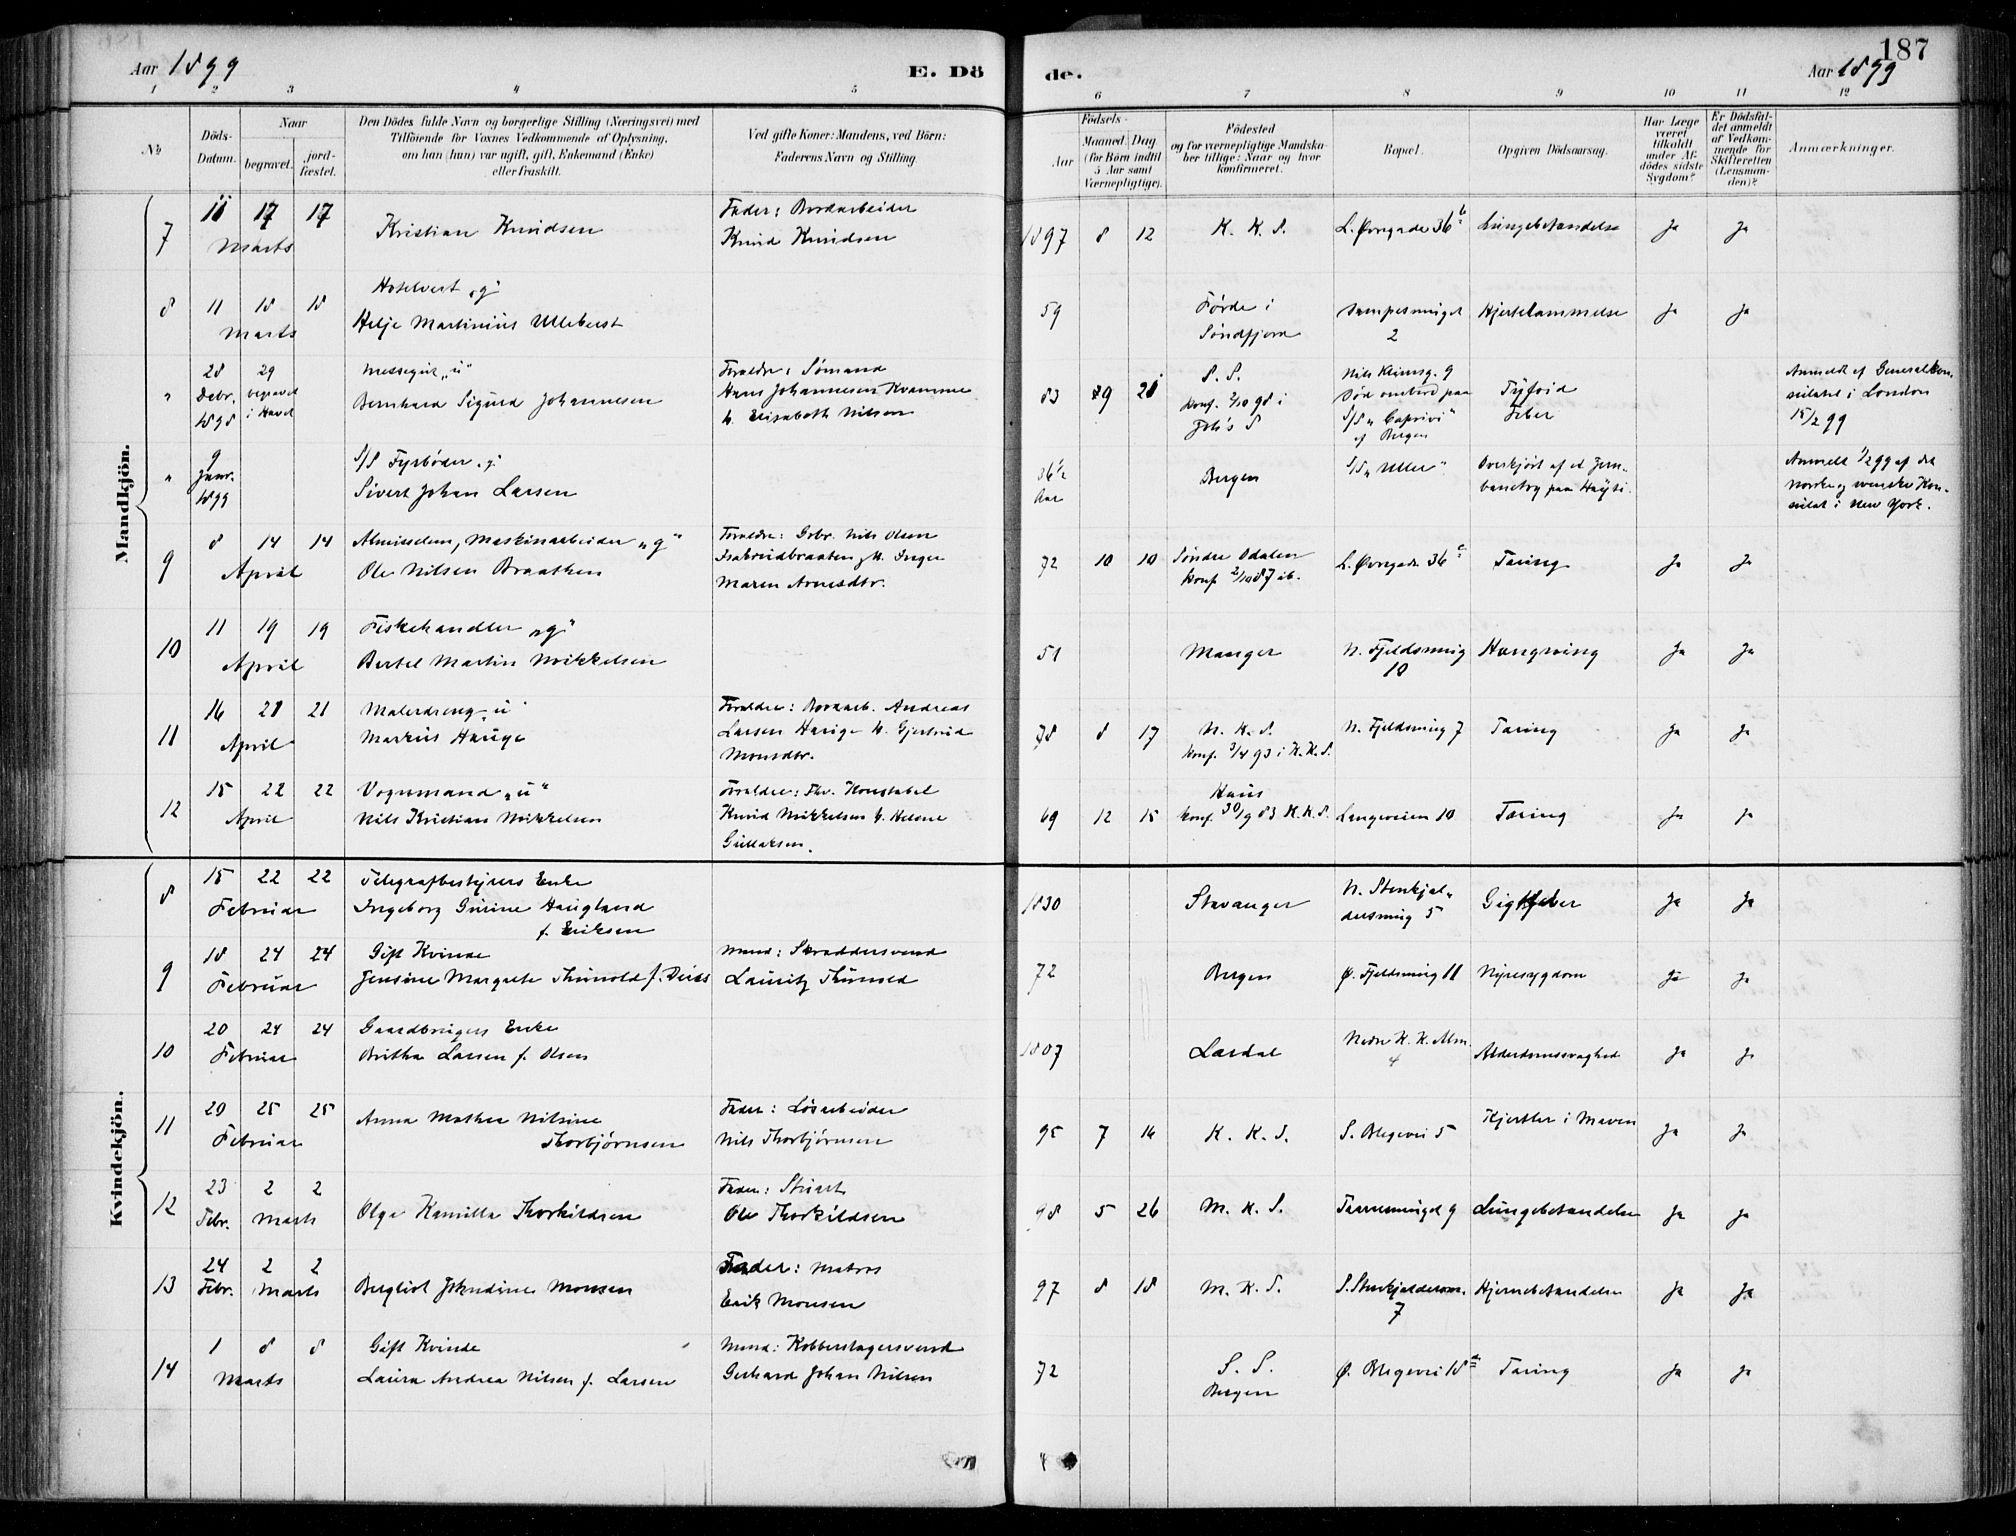 187
Aar 1899
E. Dö
de.
Aar 1899
1 2 3 4 5 6 7 8 9 10 11 12
№
Döds-Datum.
Naar
begravet.
jord-fæstet.
Den Dödes fulde Navn og borgerlige Stilling (Næringsvei) med
Tilföiende for Voxnes Vedkommende af Oplysning,
om han (hun) var ugift, gift, Enkemand (Enke)
eller fraskilt.
Ved gifte Koner: Mandens, ved Börn:
Faderens Navn og Stilling.
Födsels-
Aar
Maaned Dag
(for Börn indtil
5 Aar samt
Værnepligtige).
Födested
og for værnepligtige Mandska-
ber tillige: Naar og hvor
konfirmeret.
Bopæl.
Opgiven Dödsaarsag.
Har Læge
været
tilkaldt
under Af-
dödes sidste
Sygdom?
Er Dödsfal-
det anmeldt
af Vedkom-
mende for
Skifteretten
(Lensman-
den)?
Anmærkninger.
Mandkjön.
7 11 17 17 Marts
Kristian Knudsen
Fader: Bordarbeider
Knud Knudsen
1897 8 12 K. K. S. L. Øvregade 36 b Lungebetændelse Ja Ja
8 11 18 18 Marts
Hotelvert „g“
Helje Martinius Ulleberst
59 Førde i
Søndfjord
Dampesmuget
2
Hjertelammelse Ja Ja
" 28 Debr. 1898 29 begravet i Havet
Messegut „u“
Bernhard Sigurd Johannesen
Forældre: Sømand
Hans Johannesen Kvamme
h. Elisabeth Nilsen
83 9 21 S. S.
konf. 2/10 98 i
Joh's S
Nils Klimsg. 9
Død ombord paa
S/S „Caprivi“
af Bergen
Tyfoid
Feber
Anmeldt af Generalkon-
sulatet i London
15/2 99
" 9 Janr. 1899
S/S Fyrbøder „g“
Sivert Johan Larsen
36½
Aar
Bergen S/S „Uller“
Overkjørt af et Jern-
banetog paa Hayti.
Anmeldt 1/2 99 af det
norske og svenske Kon-
sulat i New York.
9 8 14 14 April
Almisselem, Maskinarbeider „g“
Ole Nilsen Braathen
Forældre: Grbr. Nils Olsen
h. Inger
Maren Arnesdtr.
72 10 10 Søndre Odalen
konf 2/10 87 ib.
L. Øvregade 36 c Tæring Ja Ja
10 11 19 19 April
Fiskehandler „g“
Bertel Martin Mikkelsen
51 Manger N. Fjeldsmug
10
Hængning Ja Ja
11 16 21 21 April
Malerdreng „u“
Markus Hauge
Forældre: Bordarb. Andreas
Larsen Hauge h. Gjertrud
Monsdtr.
78 8 17 N. K. S.
konf. 3/4 93 i K. K. S.
N. Fjeldsmug 7 Tæring Ja Ja
12 15 22 22 April
Vognmand „u“
Nils Kristian Mikkelsen
Forældre: Fhv. Konstabel
Knud Mikkelsen h. Helene
Gullaksen.
69 12 15 Haus
konf. 30/9 83 K. K. S. Langeveien 10 Tæring Ja Ja
Kvindekjön.
8 15 22 22 Februar
Telegrafbestyrers Enke
Ingeborg Gurine Haugland
f. Eriksen
1830 Stavanger N. Stenkjel-
dersmug 5
Gigtfeber Ja Ja
9 18 24 24 Februar
Gift Kvinde
Jensine Margrete Thunold f. Deiss
Mand: Skræddersvend
Lauritz Thunold
72 Bergen Ø. Fjeldsmug 11 Nyresygdom Ja Ja
10 20 24 24 Februar
Gaardbrugers Enke
Brithe Larsen f. Olsen
1807 Lærdal Nedre K. K. Alm.
4
Alderdomssvaghed Ja Ja
11 20 25 25 Februar
Anna Mathea Nilsine
Thorbjørnsen
Fader: Løsarbeider
Nils Thorbjørnsen
95 7 14 K. K. S. S. Blegevei 5 Kjertler i Maven Ja Ja
12 23 Febr. 2 2 Marts
Olga Kamilla Thorkildsen
Fader: Stuert
Ole Thorkildsen
98 5 26 M. K. S. 9 Lungebetændelse Ja Ja
13 24 Febr. 2 2 Marts
Bergliot Monsen
Fader: Matros
Erik Monsen
97 8 18 M. K. S. S. Stenkjeldersm.
7
Hjernebetændelse Ja Ja
14 1 8 8 Marts
Gift Kvinde
Laura Andrea Nilsen f. Larsen
Mand: Kobberslagersvend
Gerhard Johan Nilsen
72 S. S.
Bergen
Ø. Blegevei 18 a Tæring Ja Ja